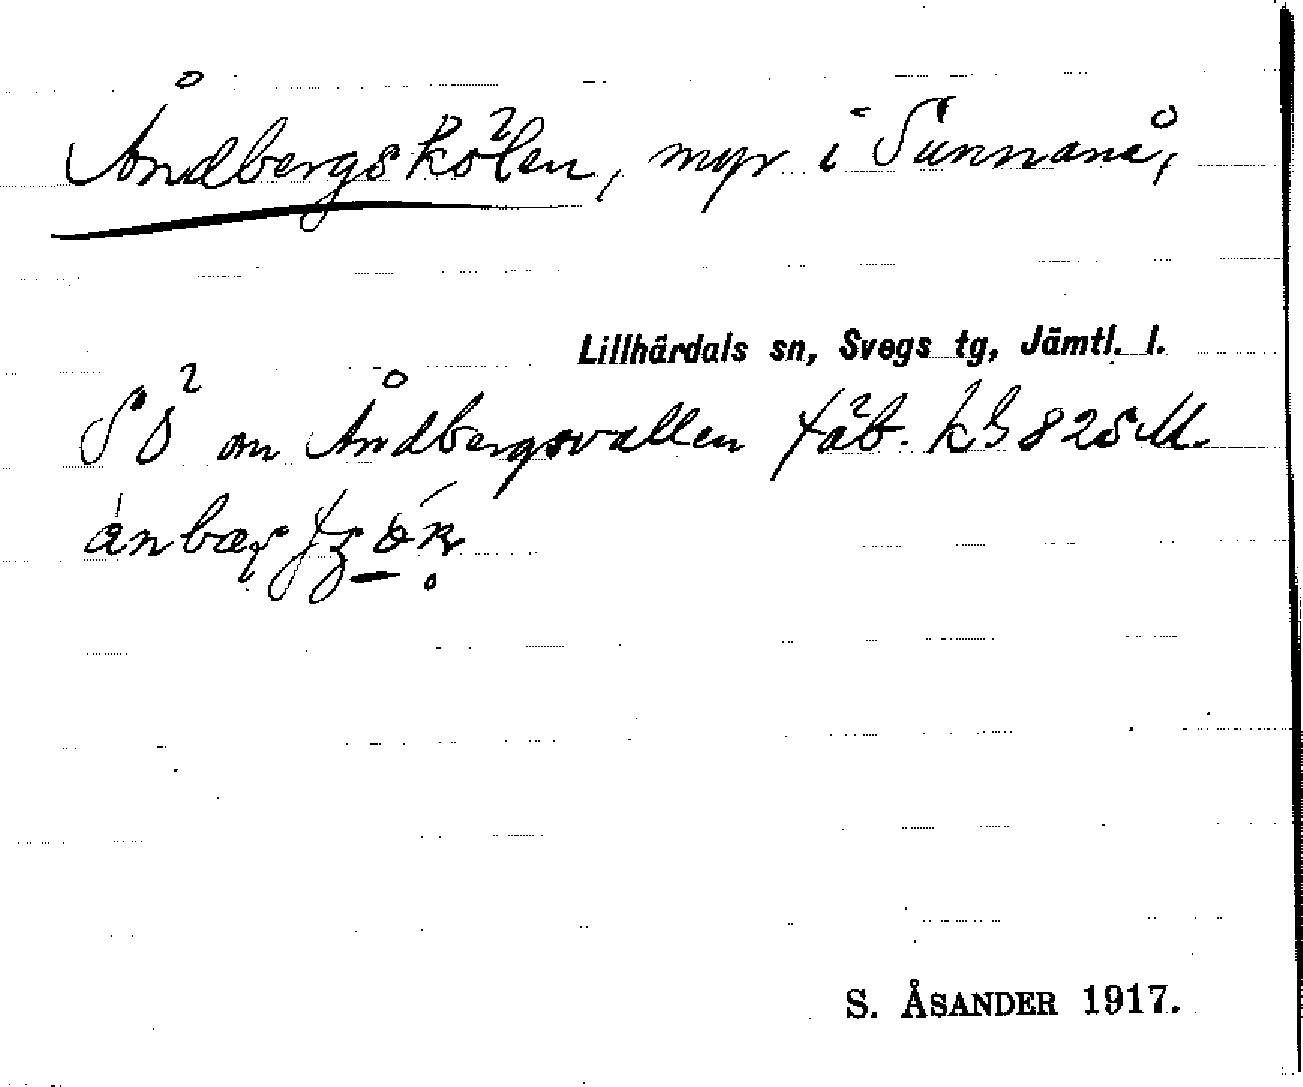 Åndbergskölen, myr i Sunnanå,
Lillhärdals sn, Svegs tg, Jämtl. l.
SÖ om Åndbergsvallen fäb. kh 825 M.
S. ÅSANDER 1917.